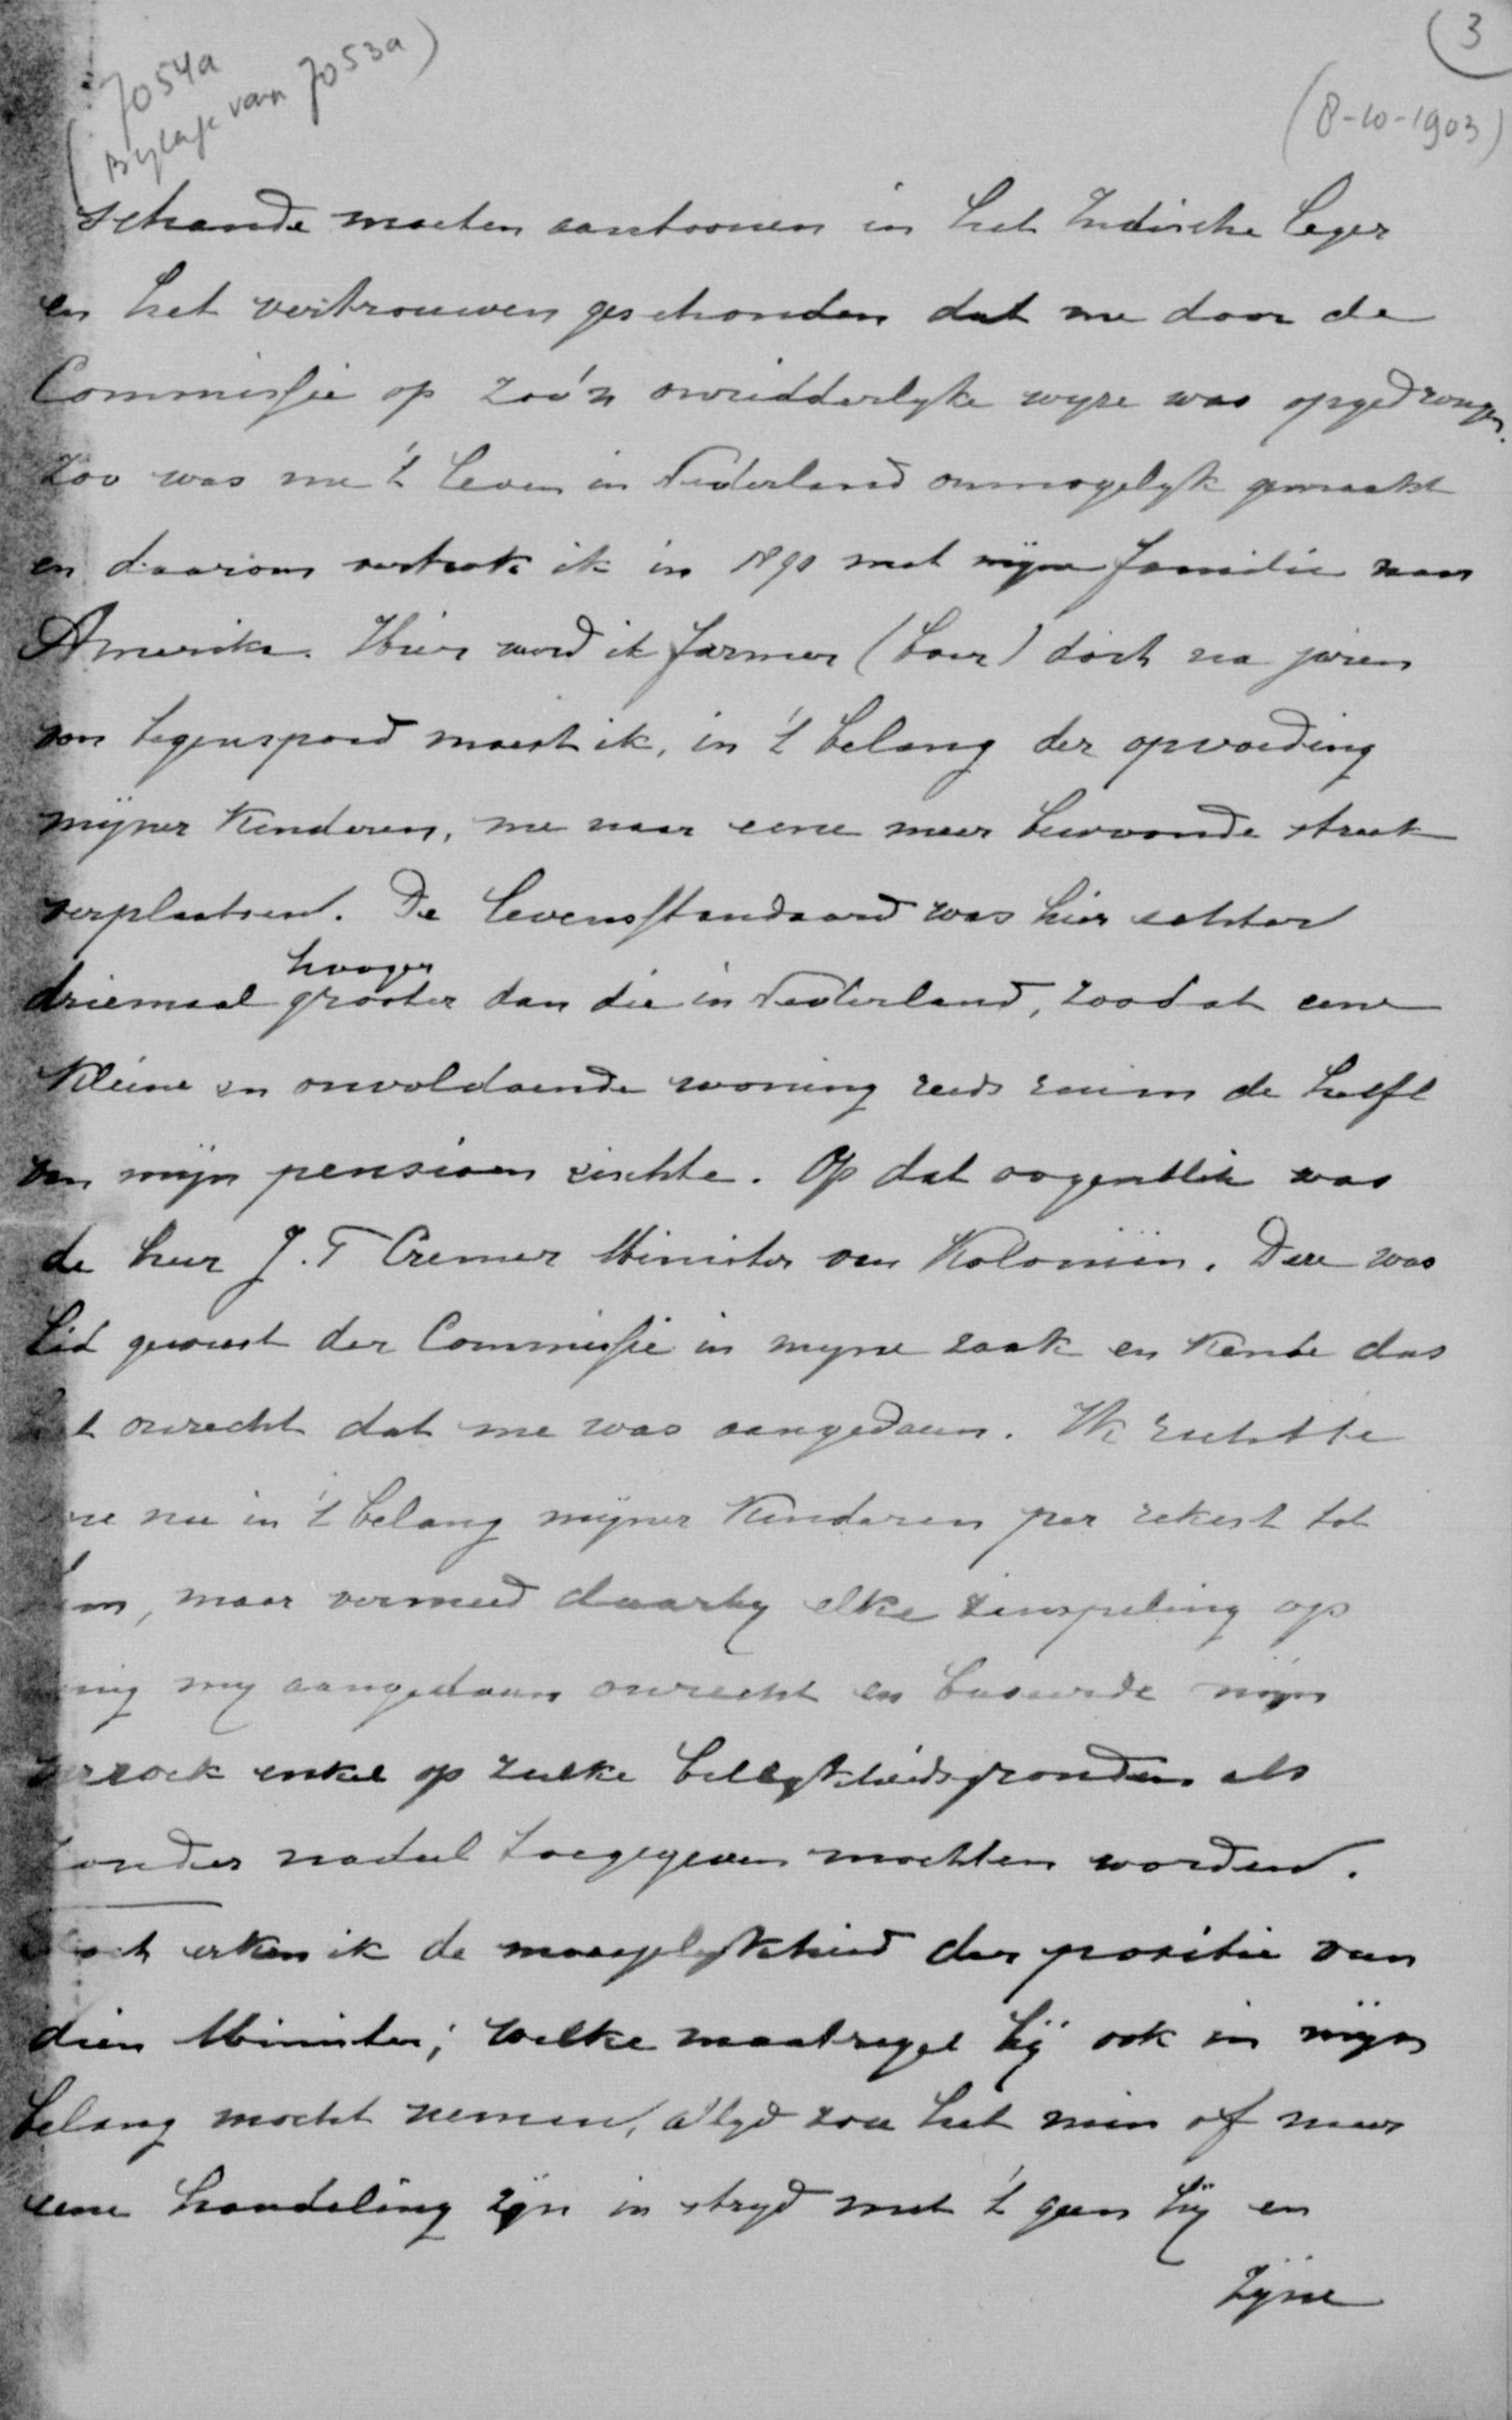 (3
(7054a
Bylage van 7053a)
(8-10-1903)
schande moeten aantoonen in het Indische leger
en het vertrouwen geschonden dat me door de
Commissie op zoo'n onridderlyke wyze was opgedrongen.
Zoo was me 't leven in Nederland onmogelyk gemaakt
en daarom vertrok ik in 1890 met mijne familie naar
Amerika. Hier werd ik farmer (boer) doch na jaren
van tegenspoed moest ik, in 't belang der opvoeding
mijner kinderen, me naar eene meer bewoonde streek
verplaatsen. De levensstandaard was hier echter
hooger
driemaal grooter dan die in Nederland, zoodat eene
kleine en onvoldoende woning reeds ruim de helft
van mijn pensioen eischte. Op dat oogenblik was
de heer J. T Cremer Minister van Koloniën. Deze was
lid geweest der Commissie in myne zaak en kende dus
t onrecht dat me was aangedaan. Ik richtte
me nu in 't belang mijner kinderen per rekest tot
hem, maar vermeed daarby elke zinspeling op
eenig my aangedaan onrecht en baseerde mijn
verzoek enkel op zulke billykheidsgronden als
zonder nadeel toegegeven mochten worden.
erken ik de moeyelykheid der positie van
dien Minister; welke maatregel hij ook in mijn
belang mocht nemen, altyd zou het min of meer
eene handeling zijn in stryd met 't geen hij en
zijne